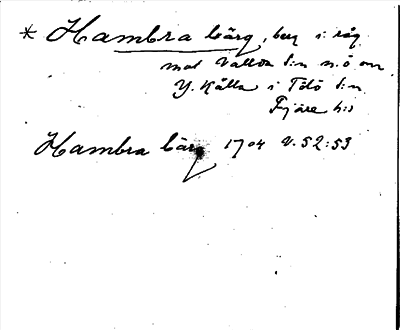 * Hambra bärg, berg i råg
mot Vallda s:n n.ö om
Y. Kålla i Tölö s:n
Fjäre h:d
Hambra bärg 1704 V. 52:53